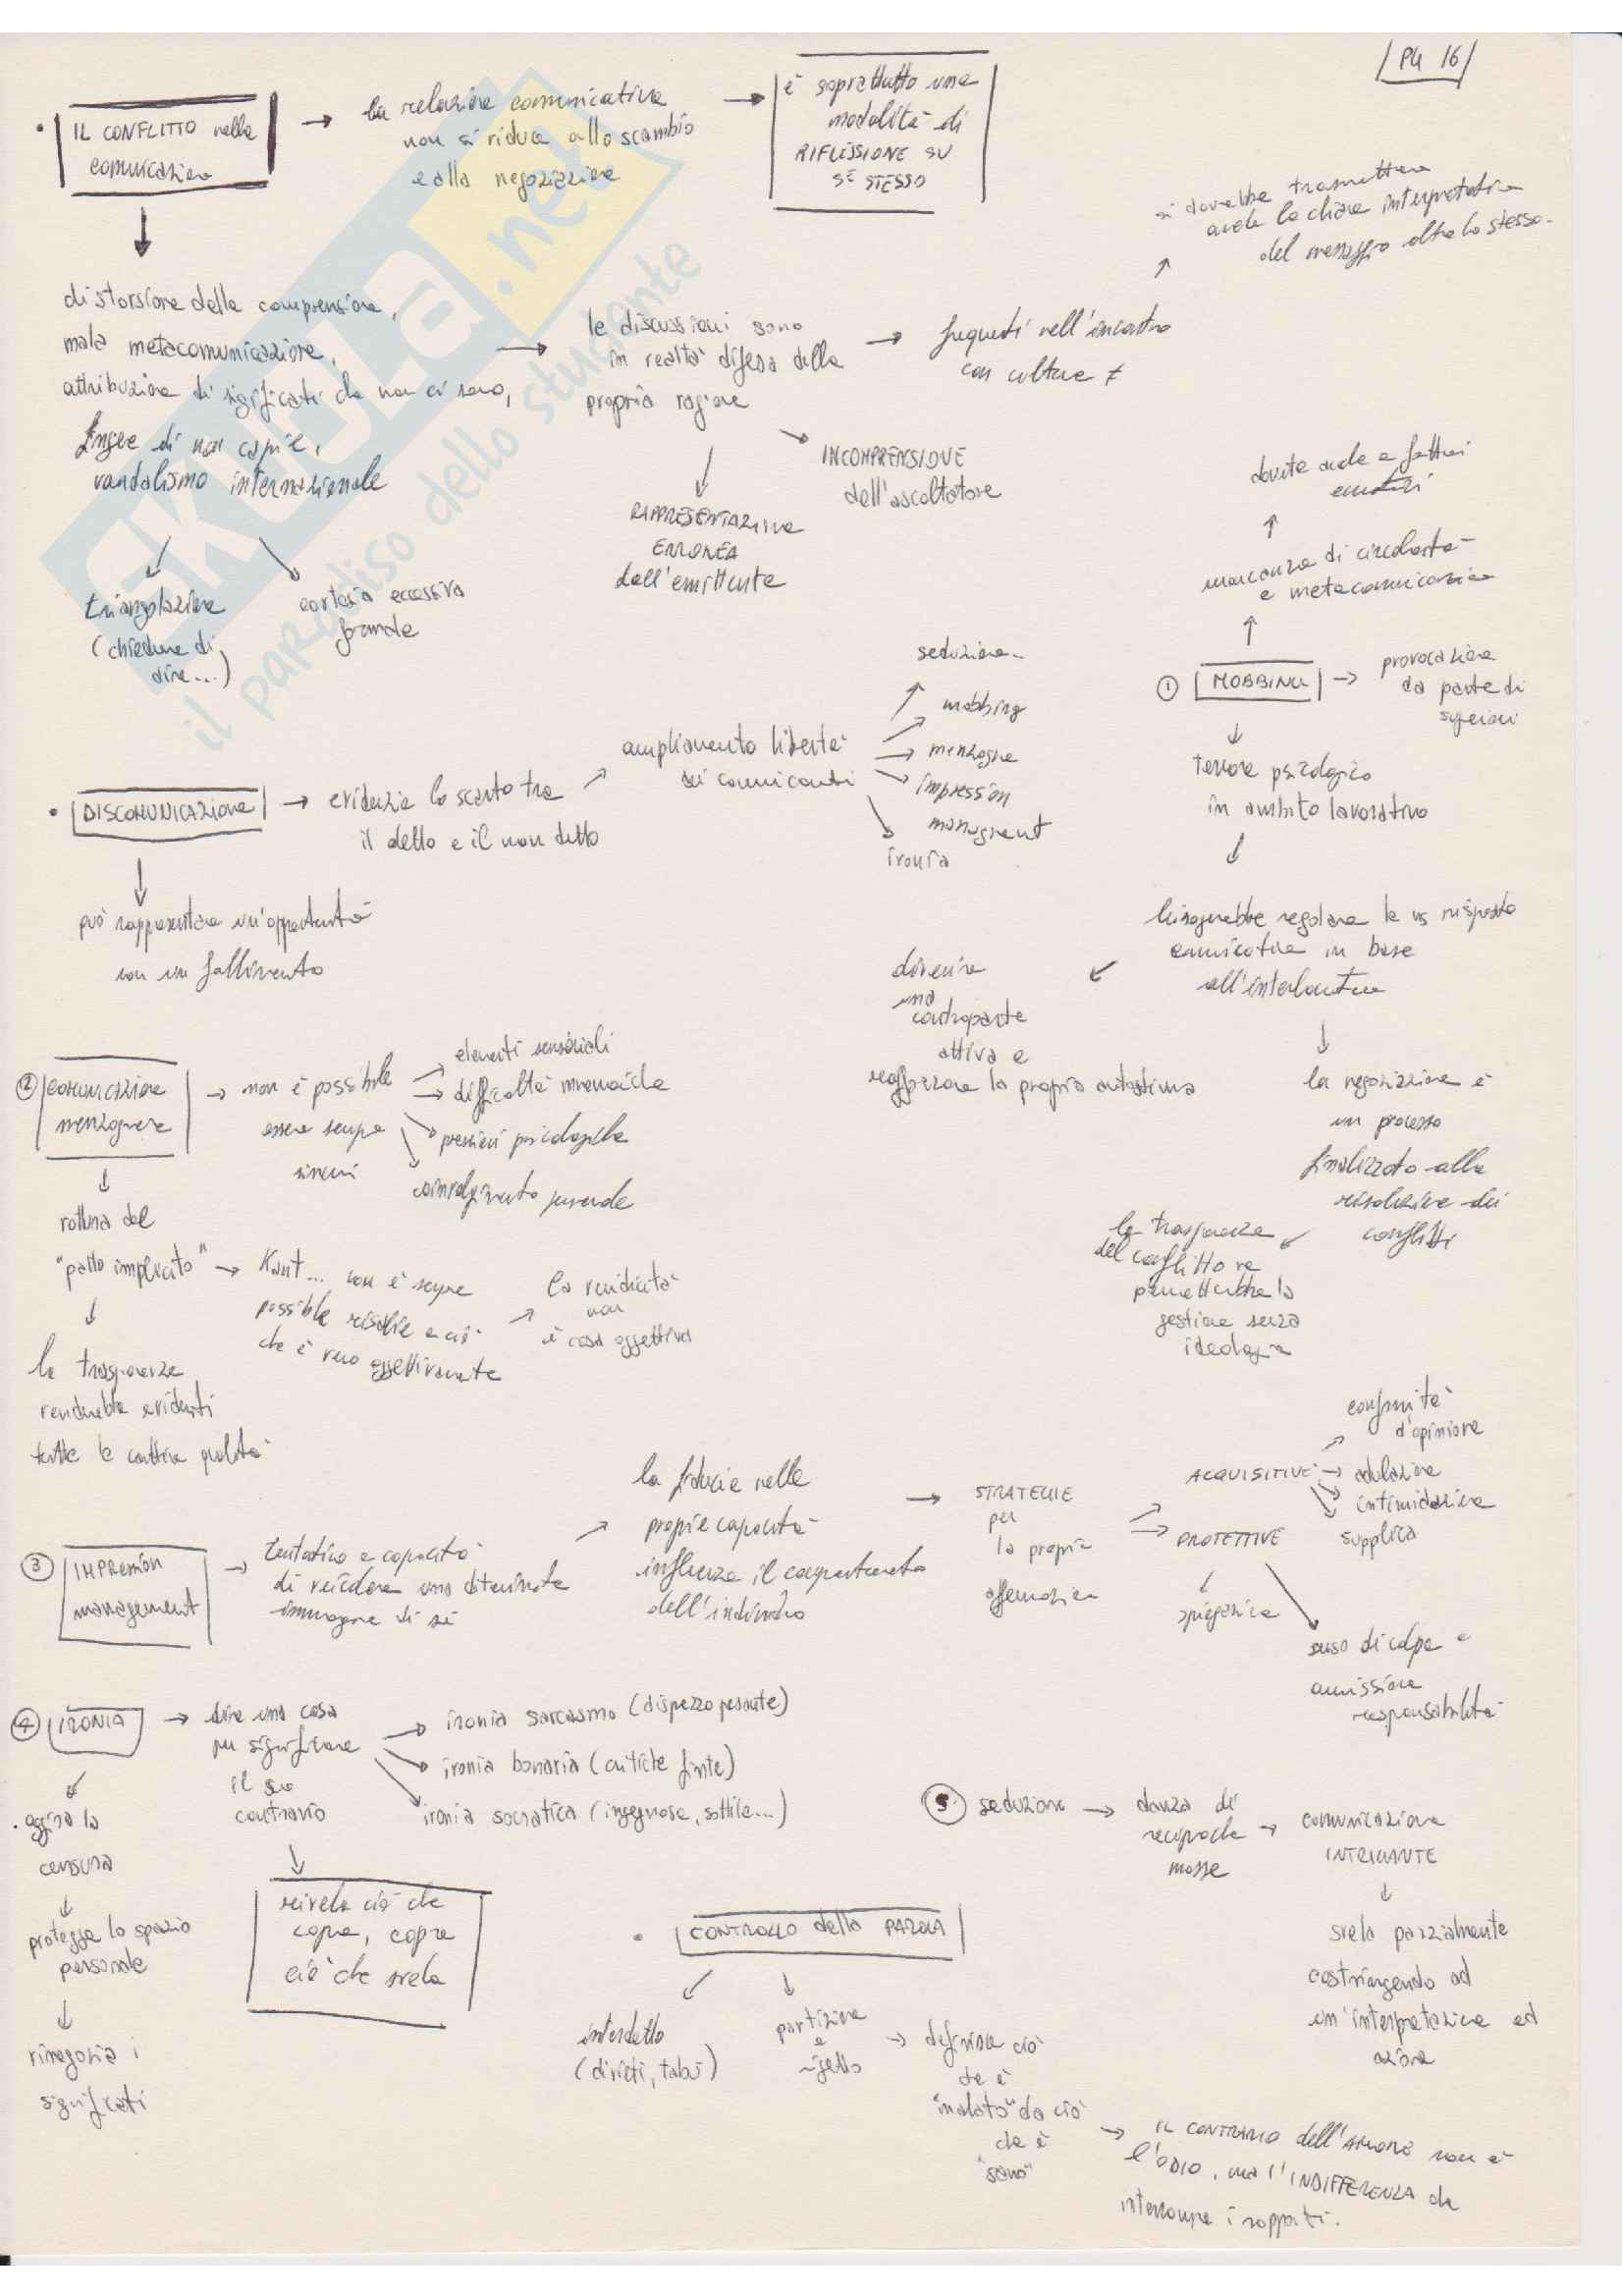 PG 16
IL CONFLITTO nella
comunicazione
la relazione comunicativa
non si riduce allo scambio
e alla negoziazione
è soprattutto una
modalità di
RIFLESSIONE SU
SÉ STESSO
si dovrebbe trasmettere
anche la chiave interpretativa
del messaggio oltre lo stesso.
distorsione della comprensione,
mala metacomunicazione,
attribuzione di significati che non ci sono,
fingere di non capire,
vandalismo internazionale
le discussioni sono
in realtà difesa della
propria ragione
frequenti nell'incontro
con culture ≠
INCOMPRENSIONE
dell'ascoltatore
RAPPRESENTAZIONE
ERRONEA
dell'emittente
triangolazione
(chiedere di
dire...)
cortesia eccessiva
formale
DISCOMUNICAZIONE
evidenzia lo scarto tra
il detto e il non detto
ampliamento libertà
dei comunicanti
seduzione
mobbing
menzogne
impression
managment
ironia
può rappresentare un'opportunità
non un fallimento
dovute anche a fattori
emotivi
mancanza di circolarità
e metacomunicazione
1 MOBBING
provocazione
da parte di
superiori
terrore psicologico
in ambito lavorativo
bisognerebbe regolare le vs risposte
comunicative in base
all'interlocutore
divenire
una
controparte
attiva e
rafforzare la propria autostima
la negoziazione è
un processo
finalizzato alla
risoluzione dei
conflitti
la trasparenza
del conflitto ne
permetterebbe la
gestione senza
ideologia
2 COMUNICAZIONE
menzognera
non è possibile
essere sempre
sinceri
elementi sensoriali
difficoltà mnemoniche
pressioni psicologiche
coinvolgimento personale
rottura del
"patto implicito"
Kant... non è sempre
possibile risalire a ciò
che è vero oggettivamente
la veridicità
non
è cosa oggettiva
la trasparenza
renderebbe evidenti
tutte le cattive qualità
3 IMPRESSION
management
tentativo e capacità
di veicolare una determinata
immagine di sé
la fiducia nelle
proprie capacità
influenza il comportamento
dell'individuo
STRATEGIE
per
la propria
affermazione
ACQUISITIVE
conformità
d'opinione
adulazione
intimidazione
supplica
PROTETTIVE
spiegazione
senso di colpa e
ammissione
responsabilità
4 IRONIA
dire una cosa
per significare
il suo
contrario
ironia sarcasmo (disprezzo pesante)
ironia bonaria (critiche finte)
ironia socratica (ingegnose, sottile...)
aggira la
censura
protegge lo spazio
personale
rinegozia i
significati
rivela ciò che
copre, copre
ciò che svela
5 seduzione
danza di
reciproche
mosse
COMUNICAZIONE
INTRIGANTE
svela parzialmente
costringendo ad
un'interpretazione ed
azione
CONTROLLO della PAROLA
interdetto
(divieti, tabù)
partizione
e
rigetto
definire ciò
che è
"malato" da ciò
che è
"sano"
IL CONTRARIO dell'AMORE non è
l'ODIO, ma l'INDIFFERENZA che
interrompe i rapporti.
SKUOLA.net
il paradiso dello studente